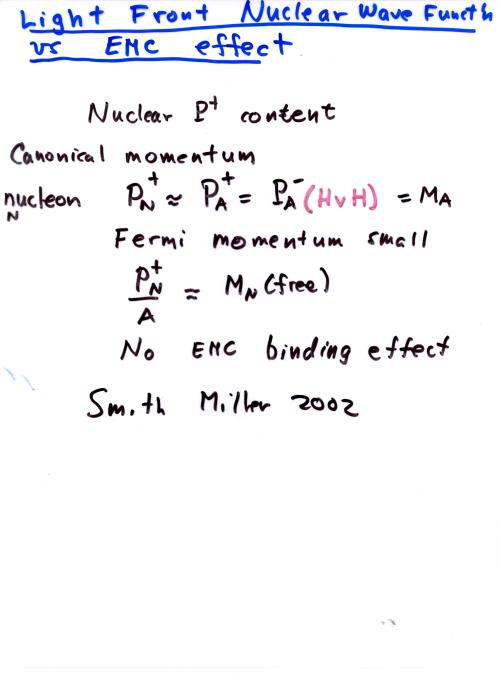 Light Front Nuclear Wave Functn
vs EMC effect
Nuclear P⁺ content
Canonical momentum
nucleon P_N⁺ ≈ P_A⁺ = P_A⁻ (HvH) = M_A
N
Fermi momentum small
P_N⁺/A ≈ M_N (free)
No EMC binding effect
Smith Miller 2002